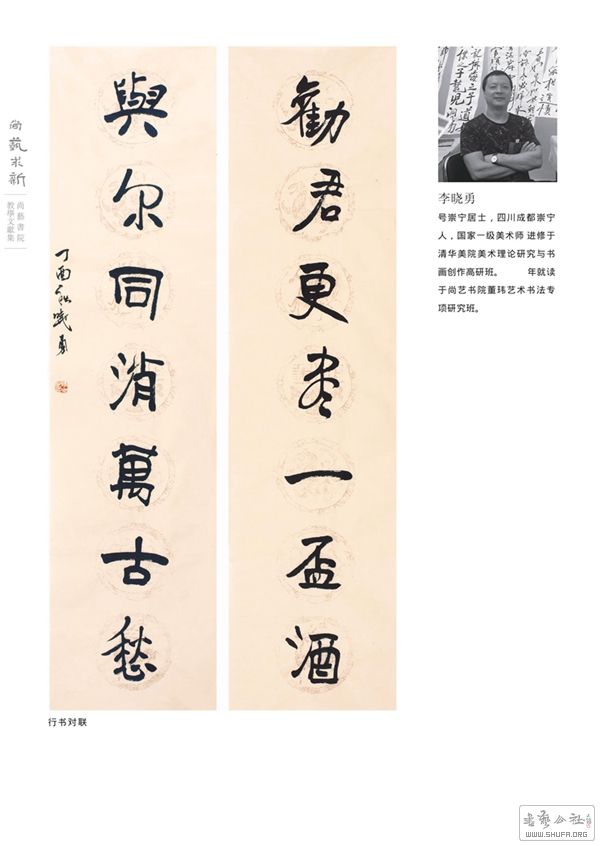 尚藝求新
尚藝書院
教學文獻集
勸君更盡一盃酒
與尔同消萬古愁
丁酉秋曉勇
行书对联
李晓勇
号崇宁居士，四川成都崇宁
人，国家一级美术师 进修于
清华美院美术理论研究与书
画创作高研班。 年就读
于尚艺书院董玮艺术书法专
项研究班。
WWW.SHUFA.ORG